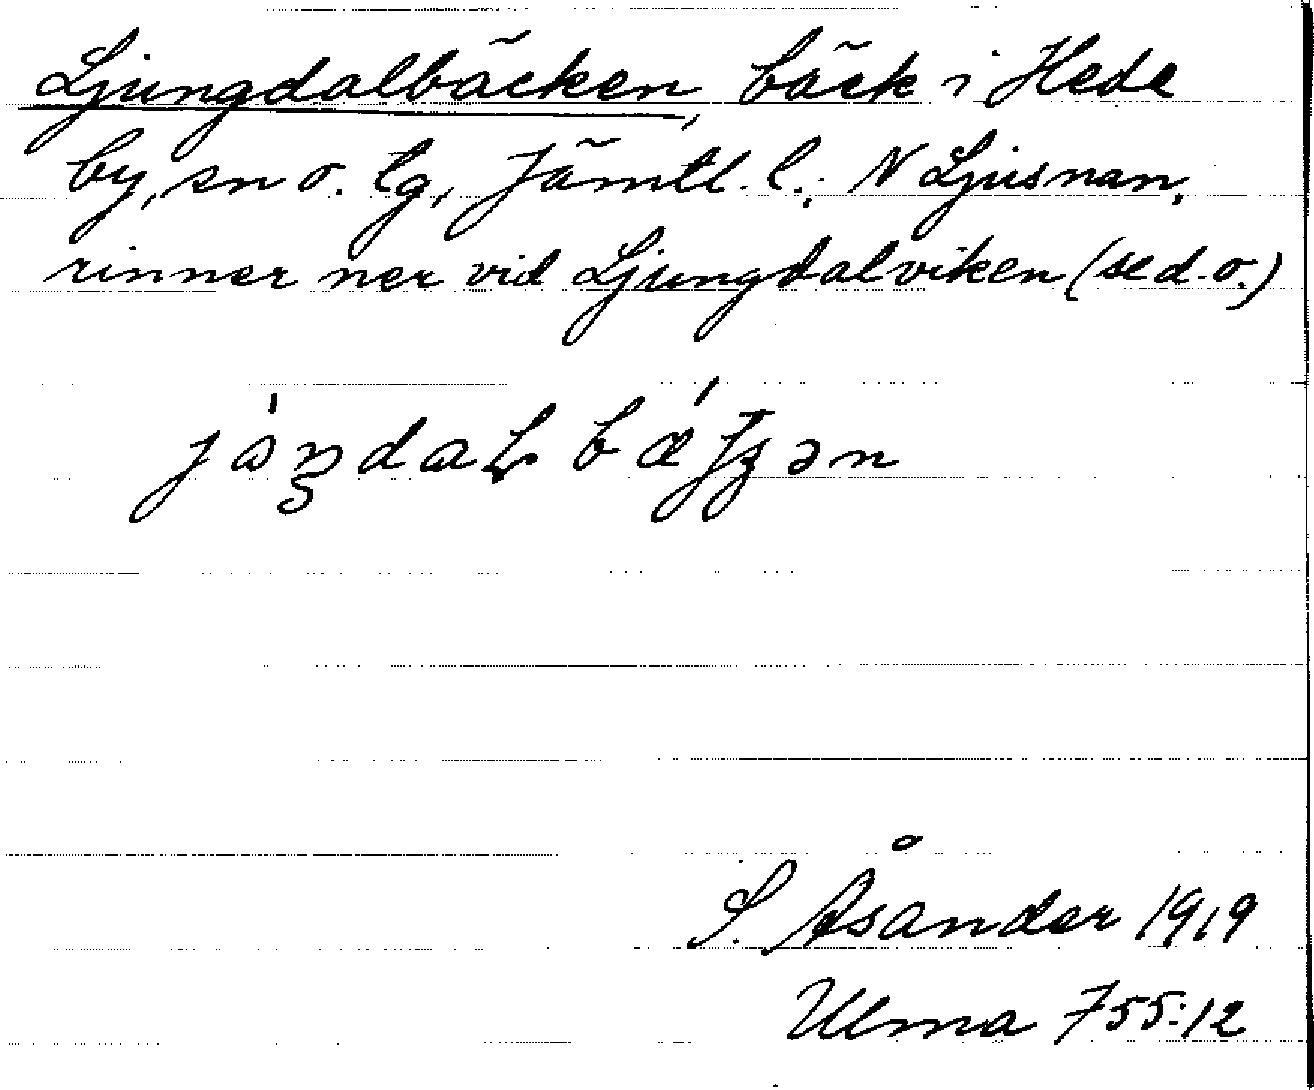 Ljungdalbäcken, bäck i Hede
by, sn o. tg, Jämtl. l.; N Ljusnan,
rinner ner vid Ljungdalviken (se d. o.)
S. Åsander 1919
Ulma 755:12